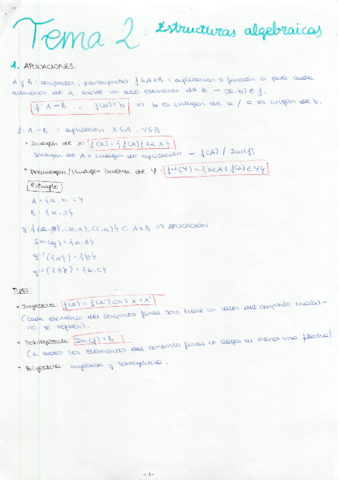 Tema 2: Estructuras algebraicas
1. APLICACIONES.
A y B = conjuntos, f ⊆ A×B = aplicación o función si para cada
elemento de A existe un solo elemento de B → (a, b) ∈ f.
f: A → B - f(a) = b ⇒ b es imagen de a / a es origen de b.
f: A → B = aplicación X ⊆ A, Y ⊆ B
• Imagen de X: f(X) = {f(x) / x ∈ X}
Imagen de A = imagen de aplicación → f(A) / Im(f)
• Preimagen / imagen inversa de Y = f⁻¹(Y) = {x ∈ A / f(x) ∈ Y}
Ejemplo
A = {a, b, c}
⇒ APLICACIÓN
Tipos:
• Inyectiva:
(Cada elemento del conjunto final solo tiene un valor del conjunto inicial
no se repiten).
Im(f) = B
(a todos los elementos del conjunto final le llega al menos una flecha)
• Biyectiva: inyectiva y
-1-